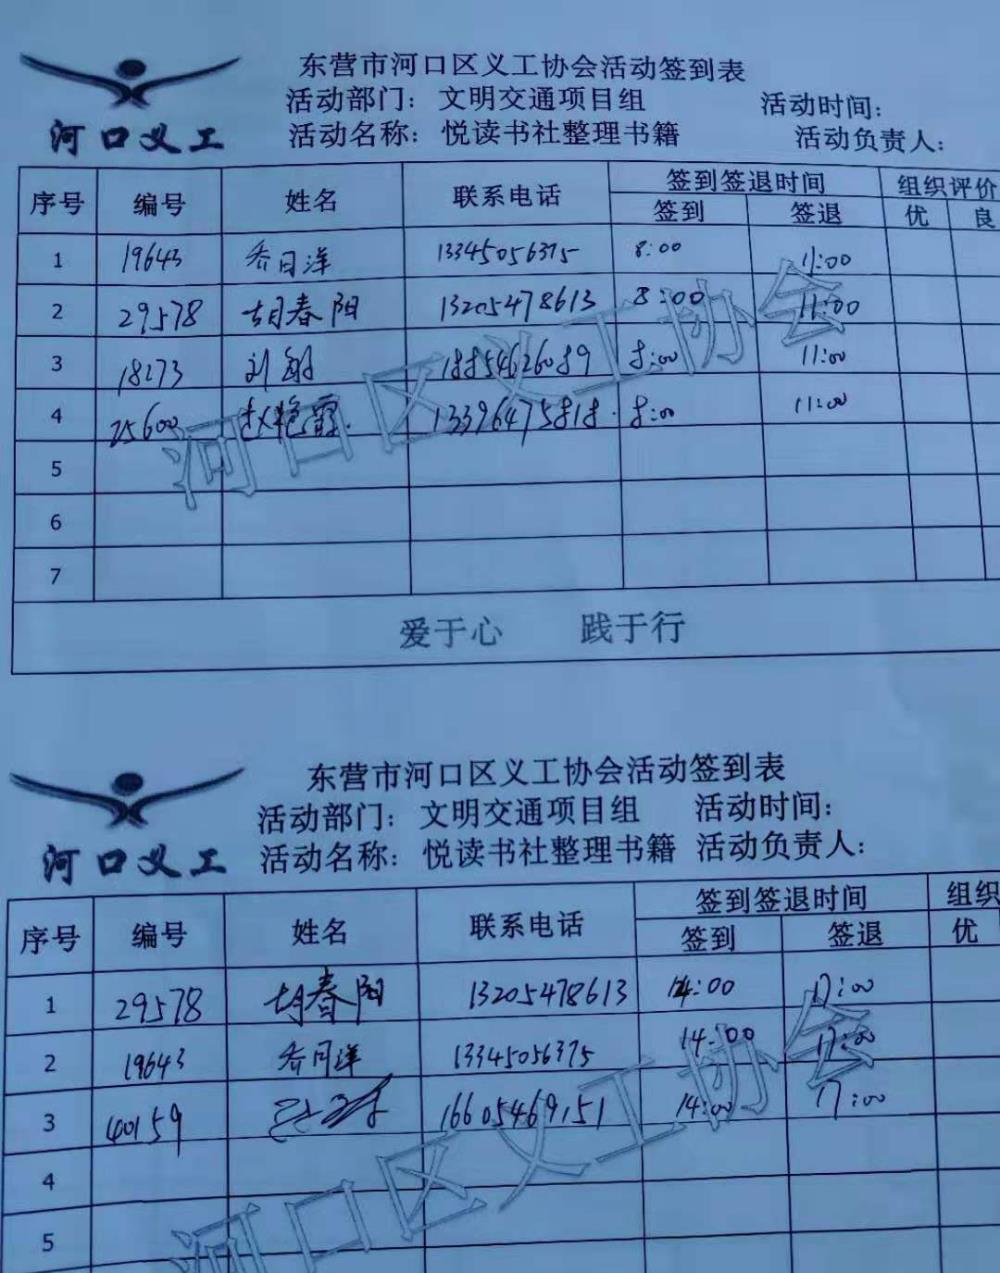 东营市河口区义工协会活动签到表
活动部门：文明交通项目组 活动时间：
河口义工 活动名称：悦读书社整理书籍 活动负责人：
序号 编号 姓名 联系电话 签到签退时间 组织评价
签到 签退 优 良
1 19643 乔月洋 13345056375 8:00 11:00
2 29578 胡春阳 13205478613 8:00 11:00
3 18273 刘 18854626089 8:00 11:00
4 25600 赵艳霞 13396475818 8:00 11:00
5
6
7
爱于心 践于行
河口区义工协会
东营市河口区义工协会活动签到表
活动部门：文明交通项目组 活动时间：
河口义工 活动名称：悦读书社整理书籍 活动负责人：
序号 编号 姓名 联系电话 签到签退时间 组织
签到 签退 优
1 29578 胡春阳 13205478613 14:00 17:00
2 19643 乔月洋 13345056375 14:00 17:00
3 40159 16605469151 14:00 17:00
4
5
河口区义工协会